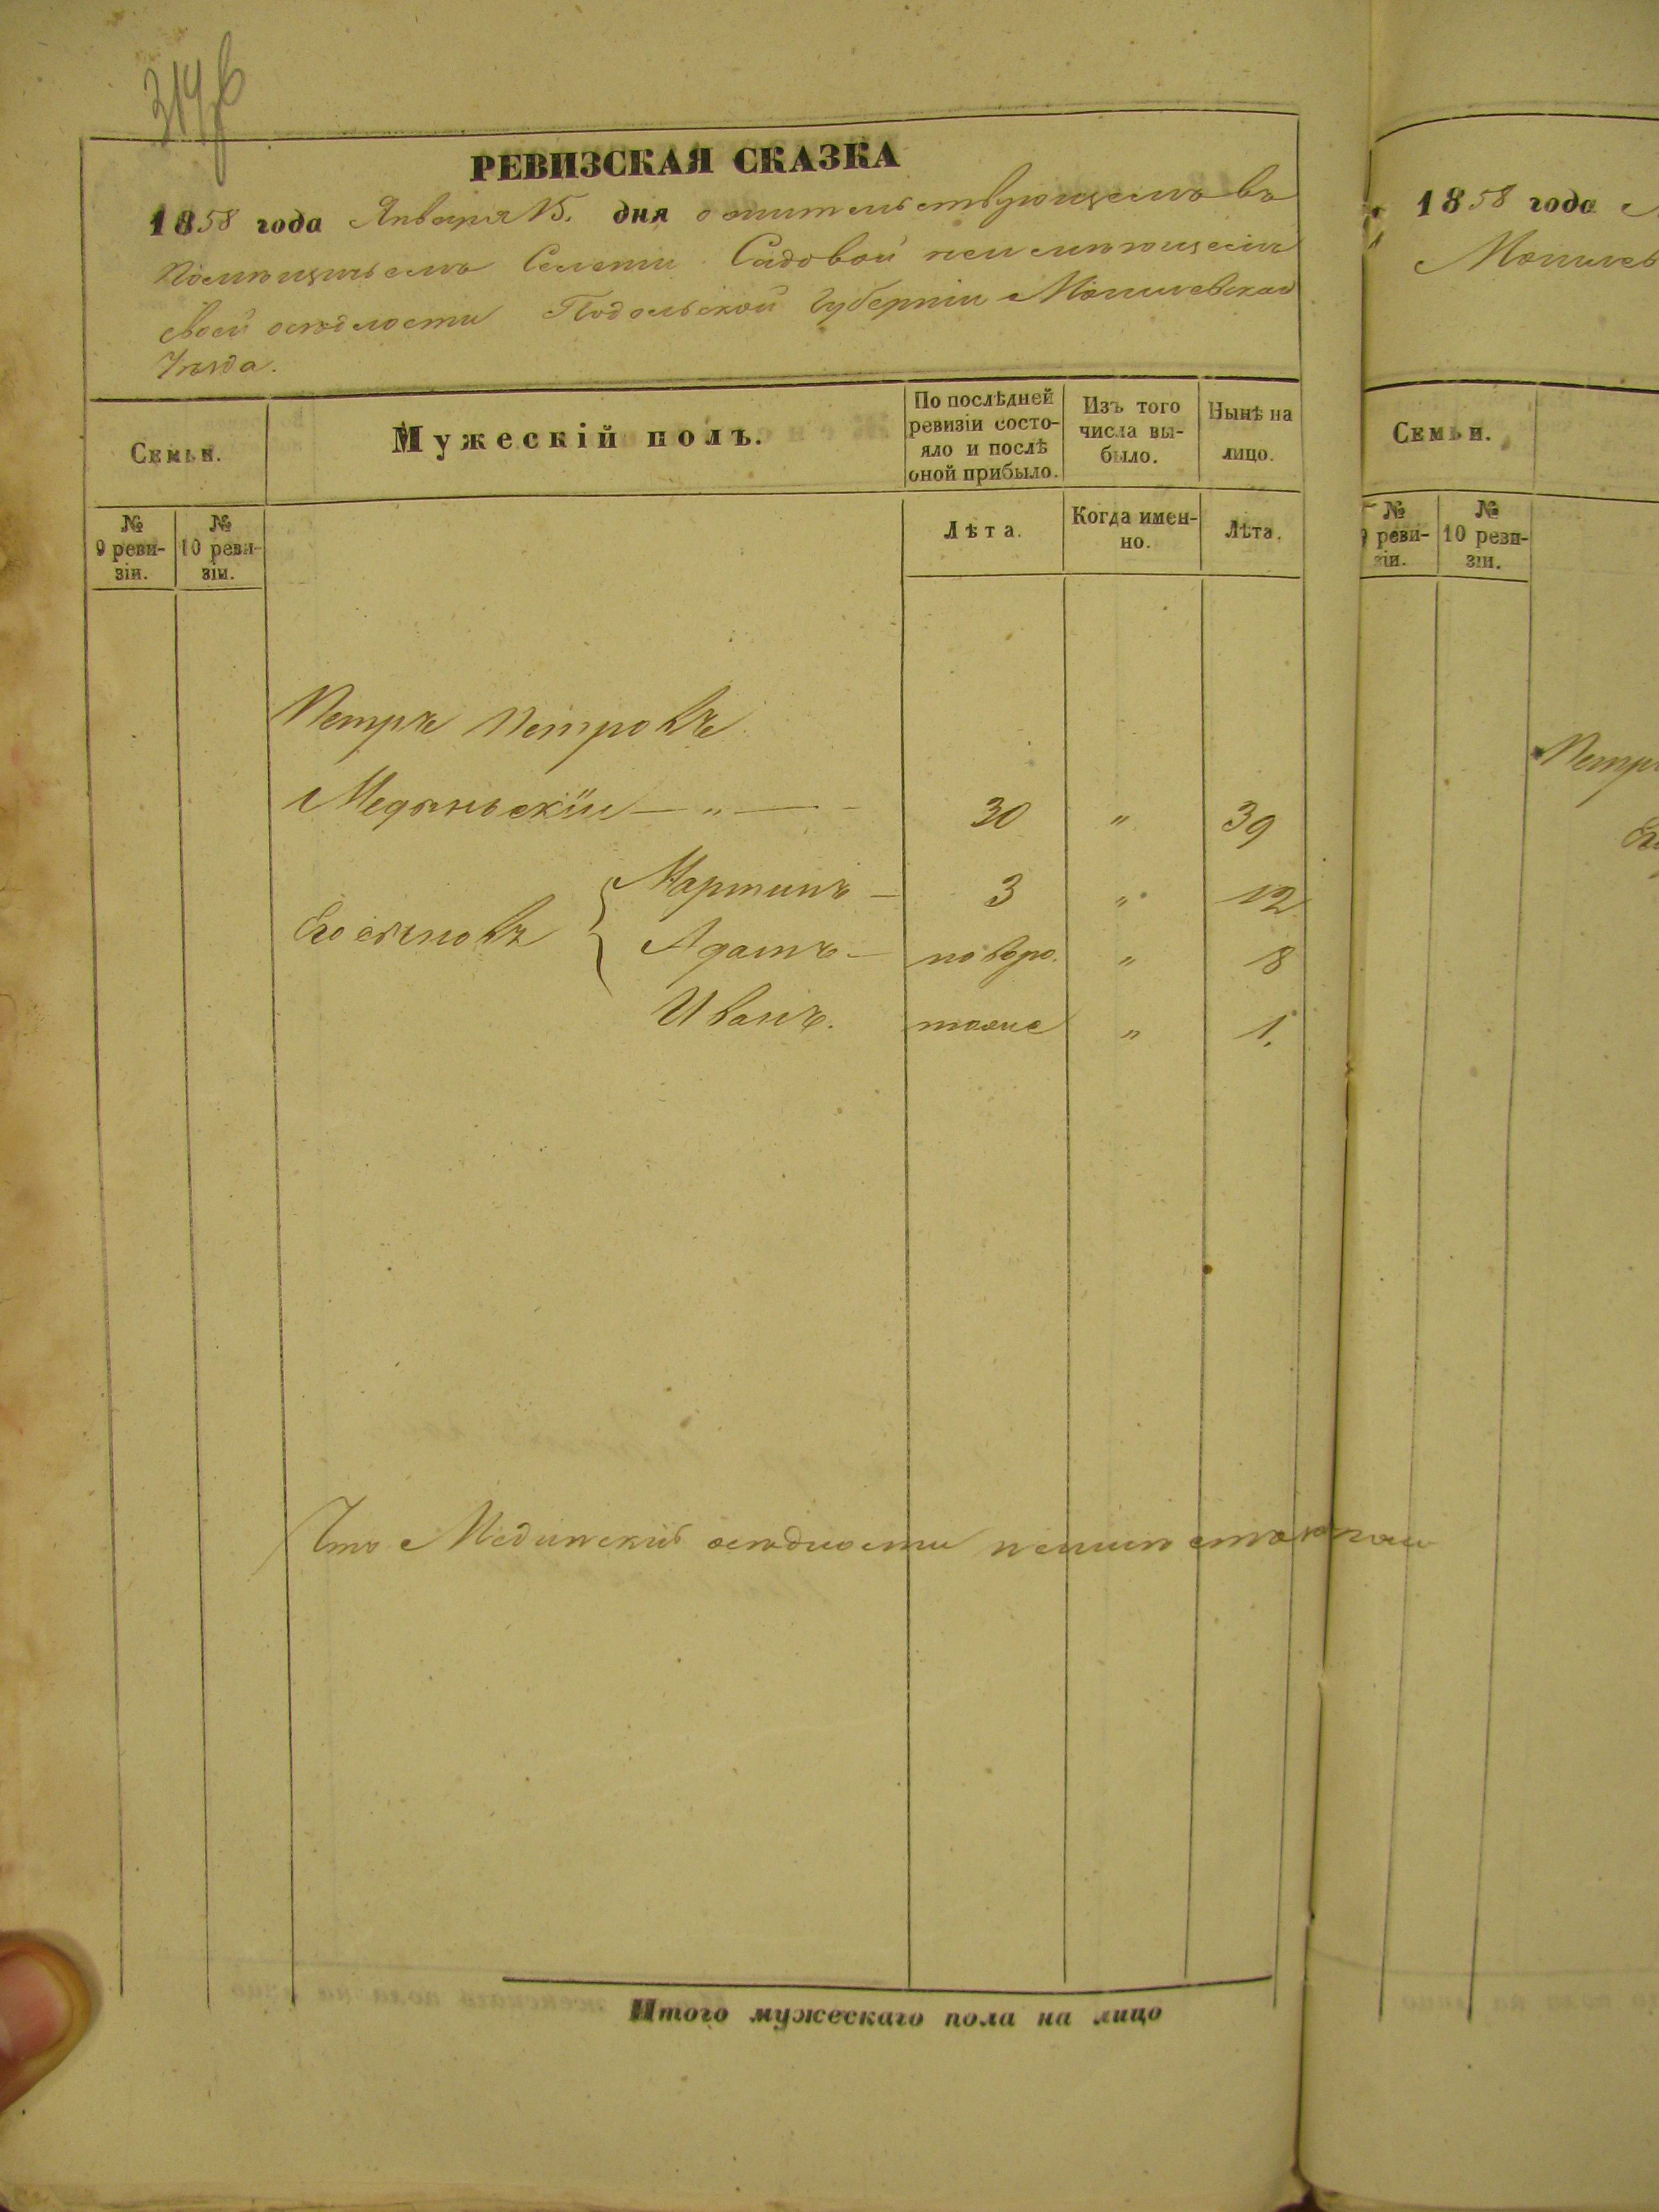 РЕВИЗСКАЯ СКАЗКА
1858 года Января 15. дня о жительствующемъ въ
Помѣщичьемъ Селеніи Садовой неимѣющемъ
своей осѣдлости Подольской Губерніи Могилевскаго
Уѣзда.
Семьи.
Мужескій полъ.
По послѣдней ревизіи состо-
яло и послѣ оной прибыло.
Изъ того числа вы-
было.
Нынѣ на лицо.
№ 9 реви-
зіи.
№ 10 реви-
зіи.
Лѣта.
Когда имен-
но.
Лѣта.
Петръ Петровъ
Медыньскій — " — 30 " 39
Его сыновъ
Мартинъ — 3 " 12
Адамъ — новоро. " 8
Иванъ. тоже " 1.
Что Мединскій осѣдлости
Итого мужескаго пола на лицо
1858 года
Могилев
Семьи.
№ реви-
зіи.
№ 10 реви-
зіи.
Петръ